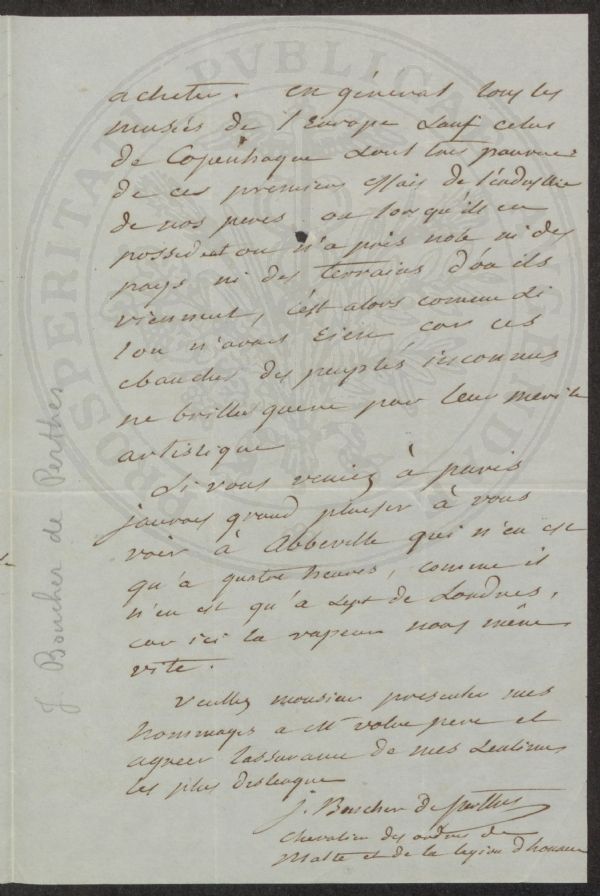 acheter. en général tous les
musés de l'Europe sauf celui
de Copenhague sont tres pauvres
de ces premiers essais de l'industrie
de nos peres. ou lorqu'ils en
possedent on n'a pris note ni des
pays ni des terrains d'où ils
viennent, c'est alors comme si
l'on n'avait rien car ces
ebauches des peuples inconnus
ne brillent guere par leur merite
artistique
Si vous veniez à paris
j'aurais grand plaisir à vous
voir à Abbeville qui n'en est
qu'à quatre heures, comme il
n'en est qu'à sept de Londres,
car ici la vapeur nous mène
vite.
Veuillez monsieur presenter mes
hommages a Mr votre pere et
agreer l'assurance de mes sentimens
les plus distingués
J. Boucher de Perthes
chevalier des ordres de
Malte et de la legion d'honneur
J. Boucher de Perthes
PROSPERITATI PVBLICAE